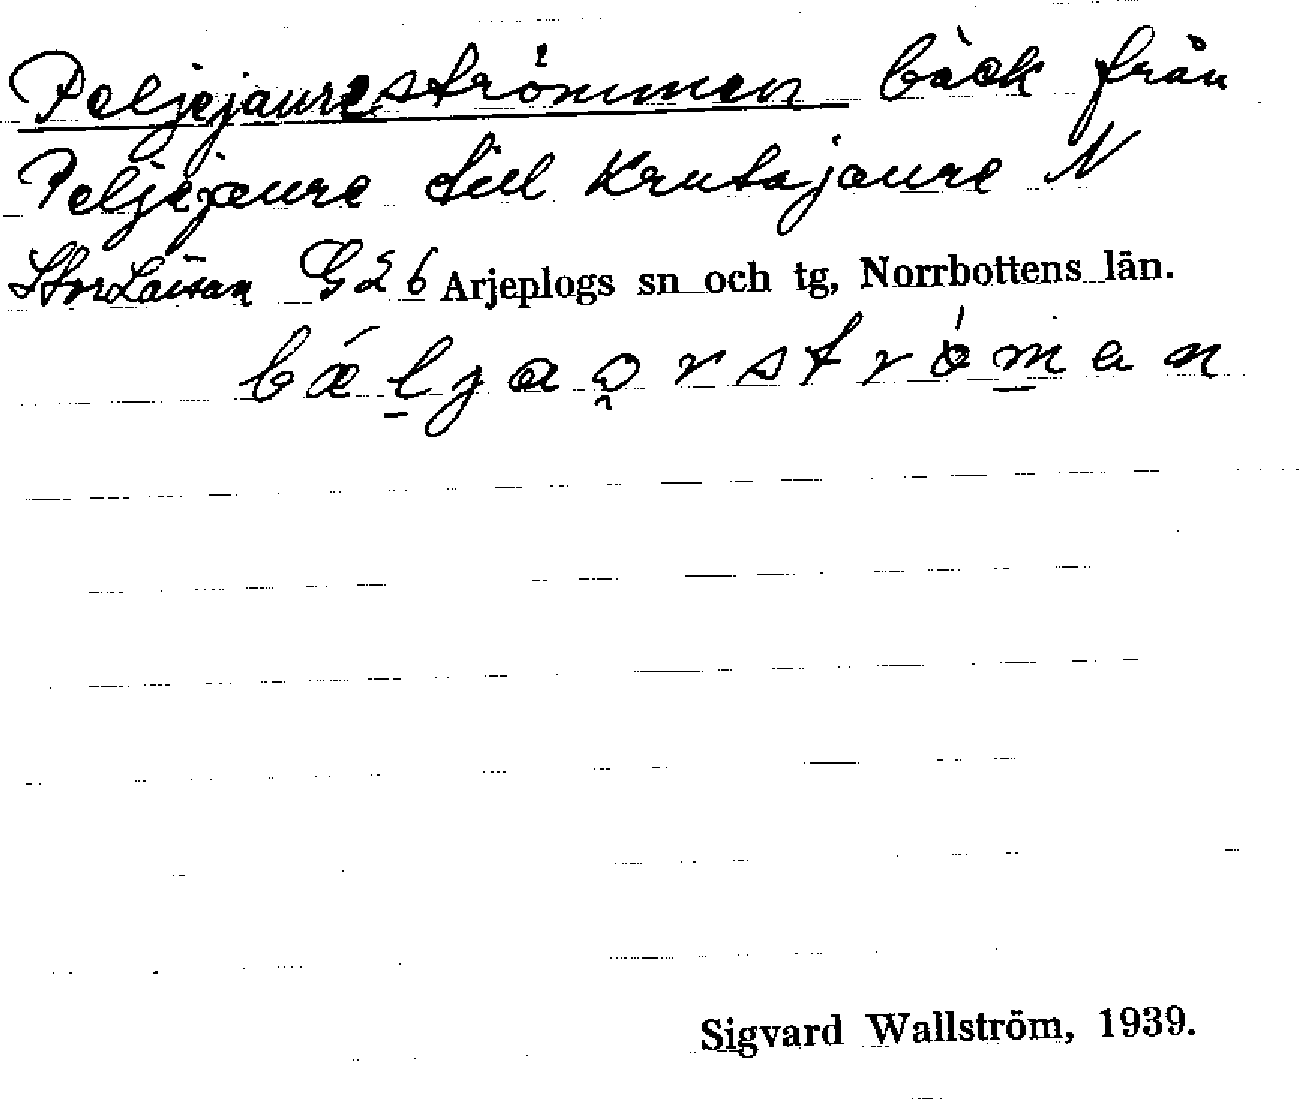 Peljejaureströmmen bäck från
Peljejaure till Krutajaure N
StorLaisan G26 Arjeplogs sn och tg, Norrbottens län.
bǽl̠gao̯rstrǿm̠an
Sigvard Wallström, 1939.